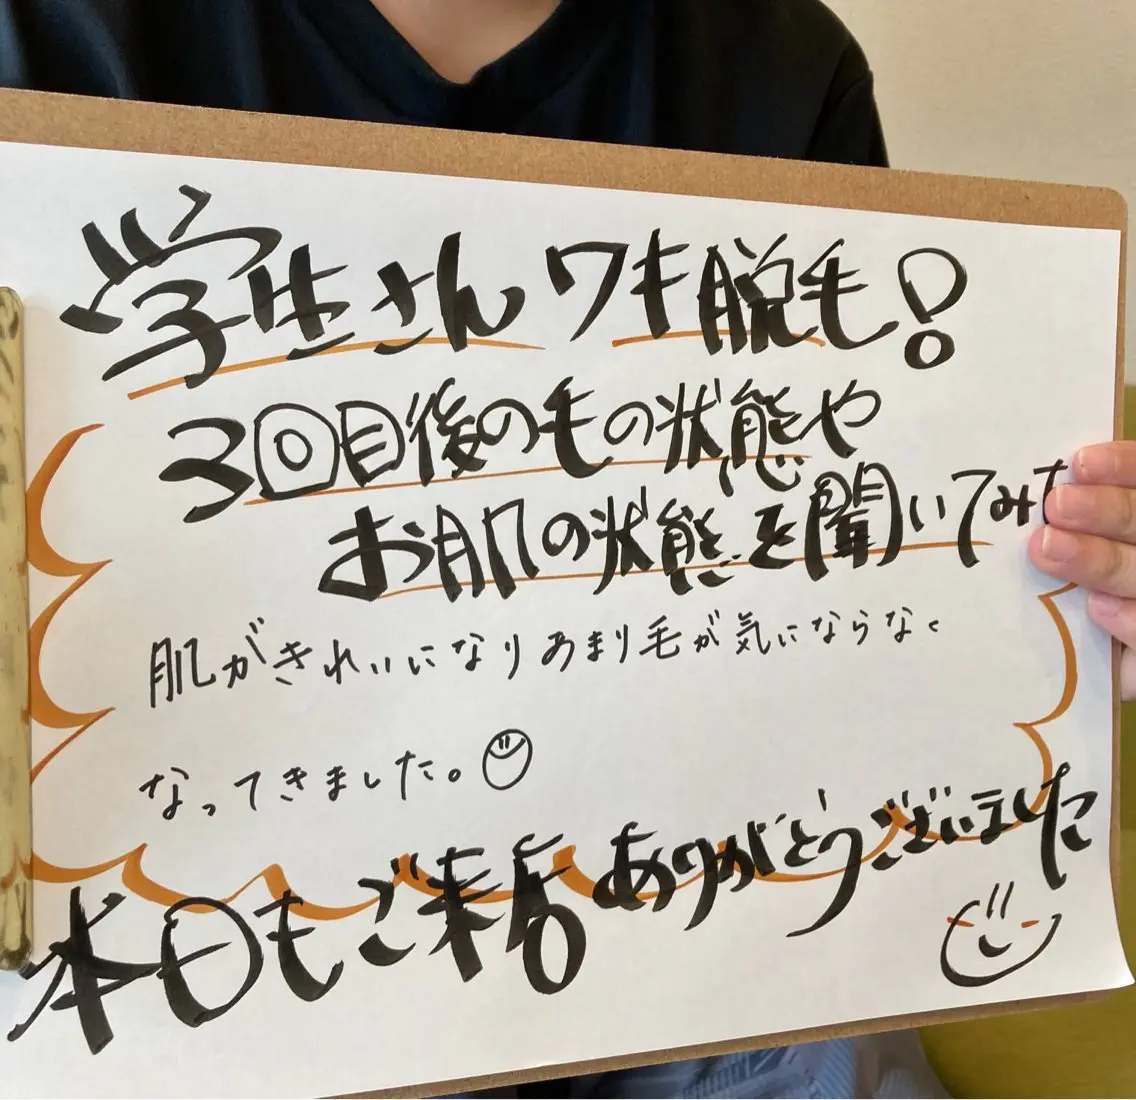 学生さんワキ脱毛!
3回目後のもの状態や
お肌の状態を聞いてみた
肌がきれいになりあまり毛が気にならなく
なってきました。
本日もご来店ありがとうございました